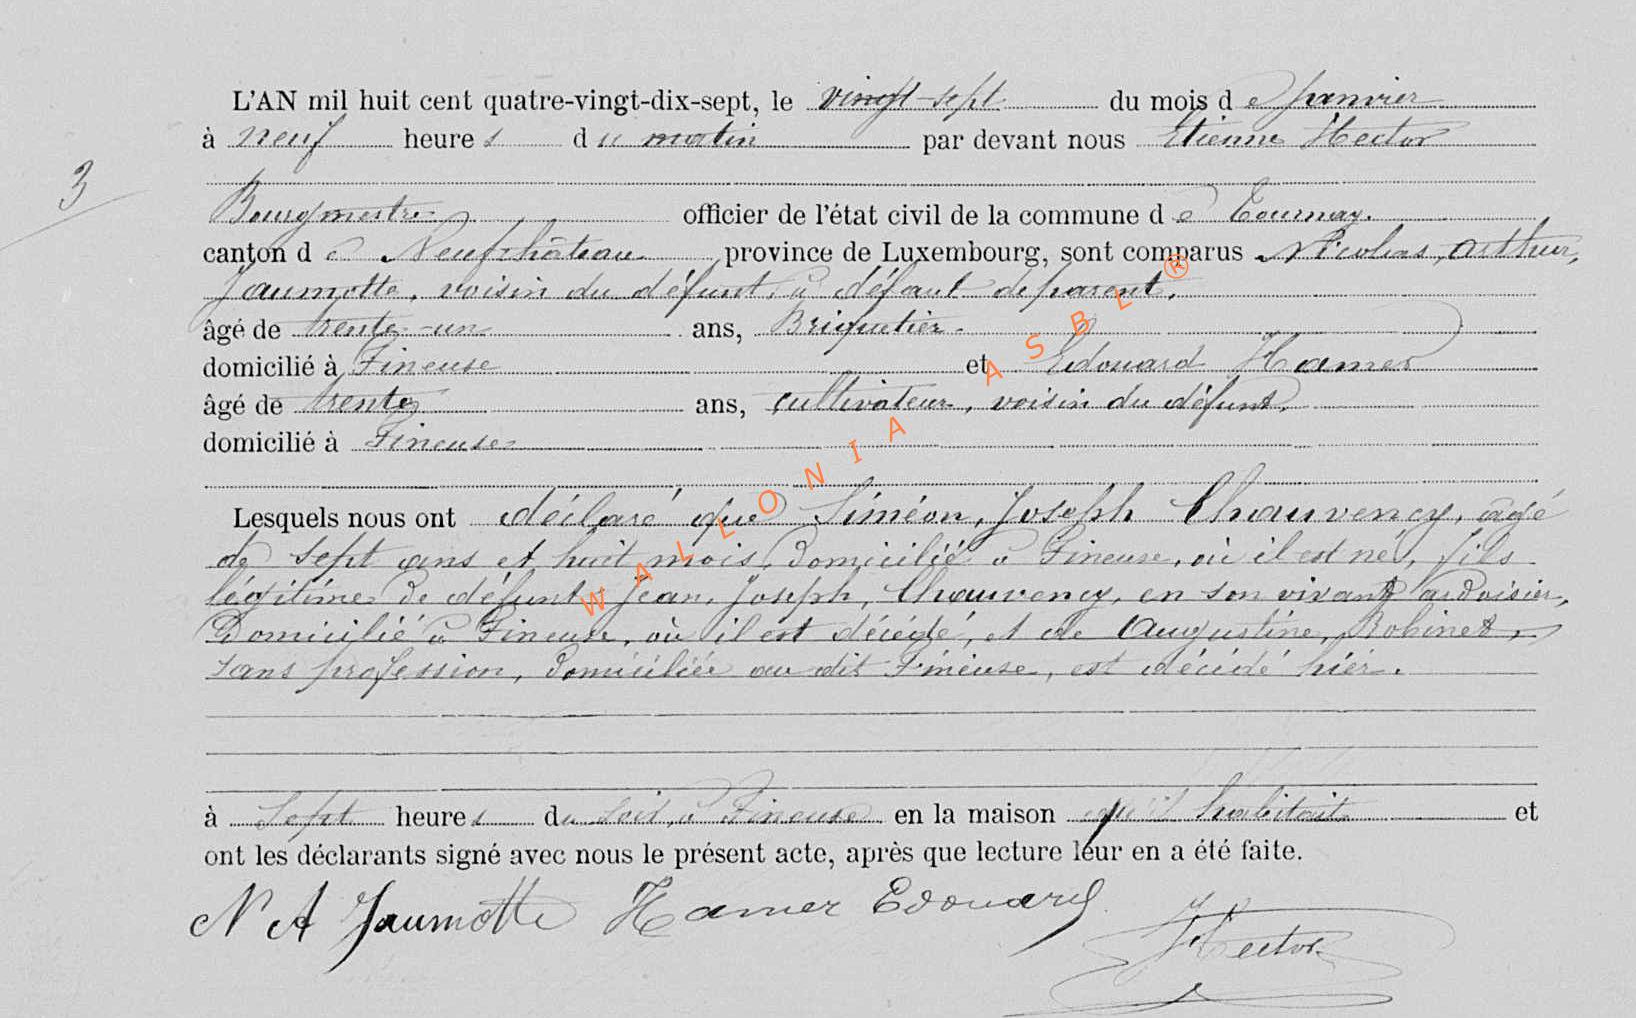 L'AN mil huit cent quatre-vingt-dix-sept, le vingt-sept du mois de Janvier
à neuf heures du matin par devant nous Etienne Hector
3
Bourgmestre officier de l'état civil de la commune de Tournay.
canton de Neufchâteau province de Luxembourg, sont comparus Nicolas, Arthur,
Jaumotte, voisin du défunt, à défaut de parent,
âgé de trente-un ans, Briquetier.
domicilié à Fineuse et Edouard Hamer
âgé de trente ans, cultivateur, voisin du défunt,
domicilié à Fineuse
Lesquels nous ont déclaré que Siméon, Joseph Chauvency, agé
de sept ans et huit mois, domicilié à Fineuse, où il est né, fils
légitime de défunt Jean, Joseph, Chauvency, en son vivant ardoisier,
domicilié à Fineuse, où il est décédé, et de Augustine, Robinet,
sans profession, domiciliée au dit Fineuse, est décédé hier.
à Sept heures du soir, à Fineuse en la maison qu'il habitait et
ont les déclarants signé avec nous le présent acte, après que lecture leur en a été faite.
N A Jaumotte Hamer Edouard
Hector
WALLONIA ASBL ®